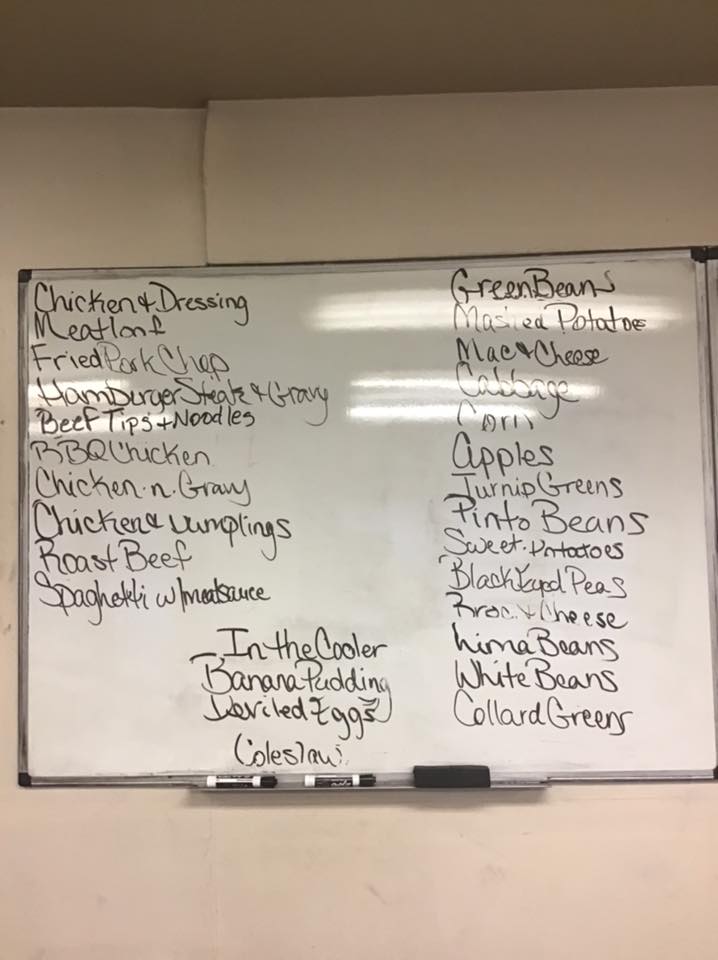 Chicken & Dressing
Meatloaf
Fried Pork Chop
Hamburger Steak & Gravy
Beef Tips + Noodles
BBQ Chicken
Chicken.n.Gravy
Chicken & Dumplings
Roast Beef
Spaghetti w/meatsauce
Green Beans
Mashed Potatoe
Mac & Cheese
Cabbage
Corn
Apples
Turnip Greens
Pinto Beans
Sweet.Potatoes
Black Eyed Peas
Broc. & Cheese
Lima Beans
White Beans
Collard Greens
In the Cooler
Banana Pudding
Deviled Eggs
Coleslaw